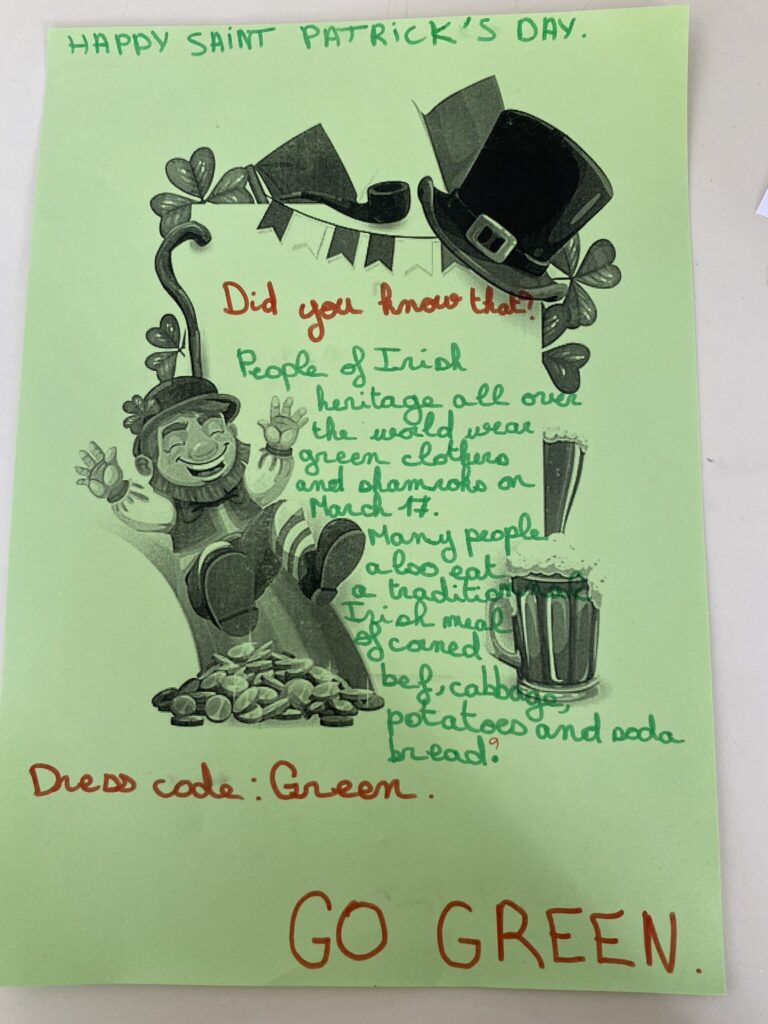 HAPPY SAINT PATRICK'S DAY.
Did you know that?
People of Irish
heritage all over
the world wear
green clothers
and shamroks on
March 17.
Many people
also eat
a traditionnal
Irish meal
of corned
bef, cabbage,
potatoes and soda
bread?
Dress code: Green.
GO GREEN.